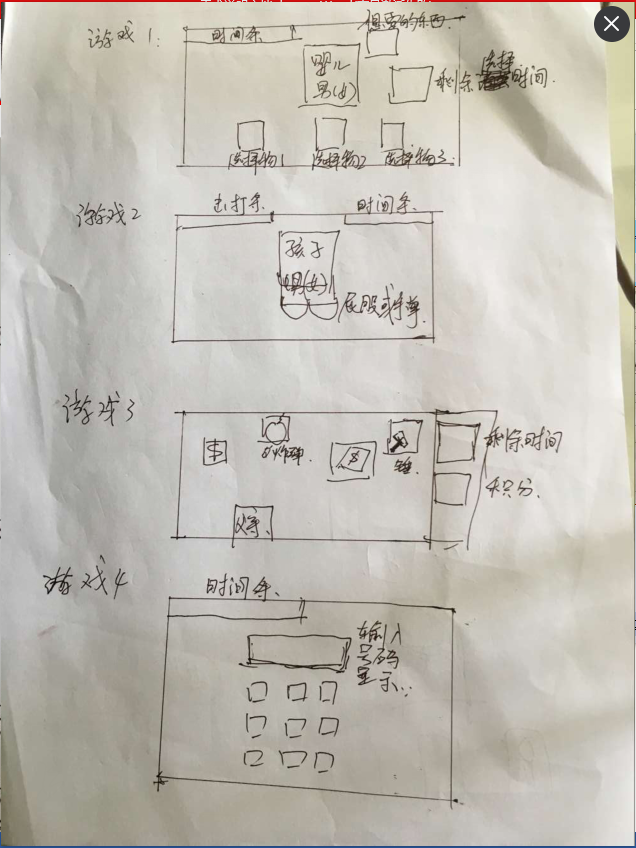 游戏1:
时间条
想要的东西.
婴儿
男(女)
剩余选择时间.
选择物1
选择物2
选择物3.
游戏2
击打条
时间条
孩子
男(女)
屁股或手掌.
游戏3
$
炸弹
$
锤
父亲.
剩余时间
积分.
游戏4
时间条.
输入
号码
显示..